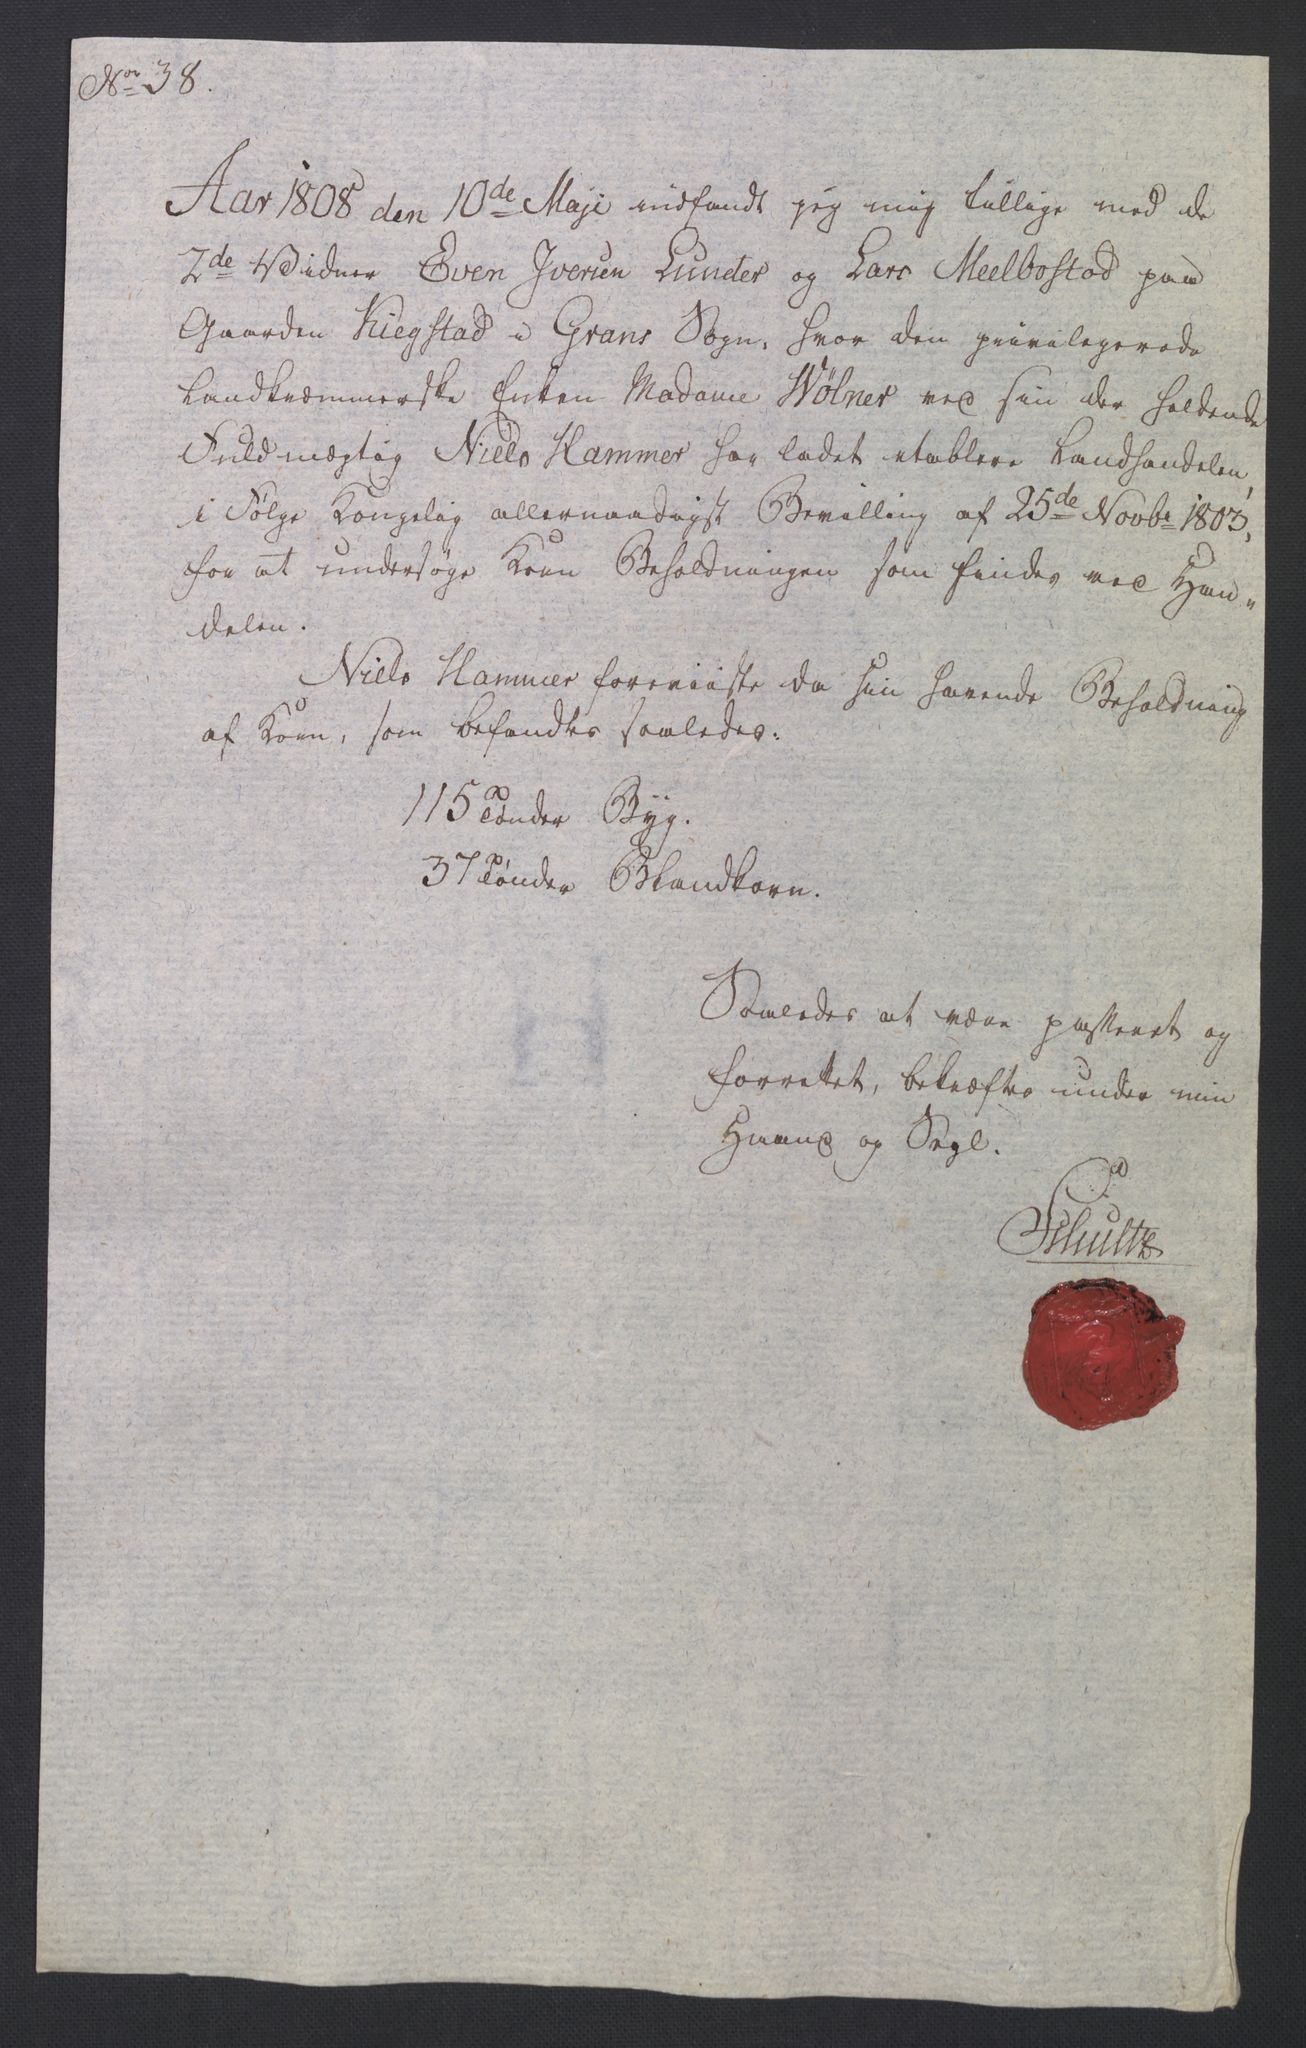 No 38.
Aar 1808 den 10de Maji indfandt jeg mig tillige med de
2de Vidner Even Iversen Lunder og Lars Meelbostad paa
Gaarden Kiegstad i Grans Sogn, hvor den privilegerede
Landkræmmerske Enken Madame Wölner ved sin der holdende
Fuldmægtig Niels Hammer har ladet etablere Landhandelen,
i Følge Kongelig allernaadigst Bevilling af 25de Novbr 1803,
for at undersøge Korn Beholdningen som findes ved Han-
delen.
Niels Hammer foreviiste da sin havende Beholdning
af Korn, som befandtes saaledes:
115 Tønder Byg.
37 Tønder Blandkorn.
Saaledes at være passeret og
forrettet, bekræftes under min
Haand og Segl.
Schultz